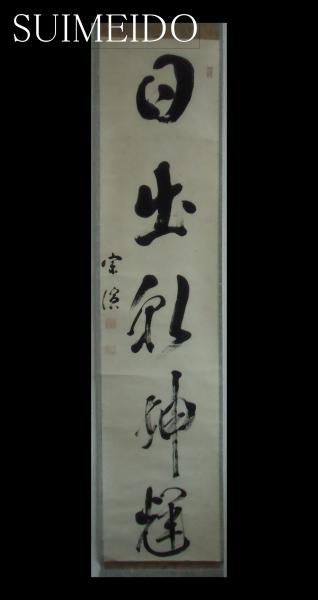 SUIMEIDO
日出乾坤輝
宗演